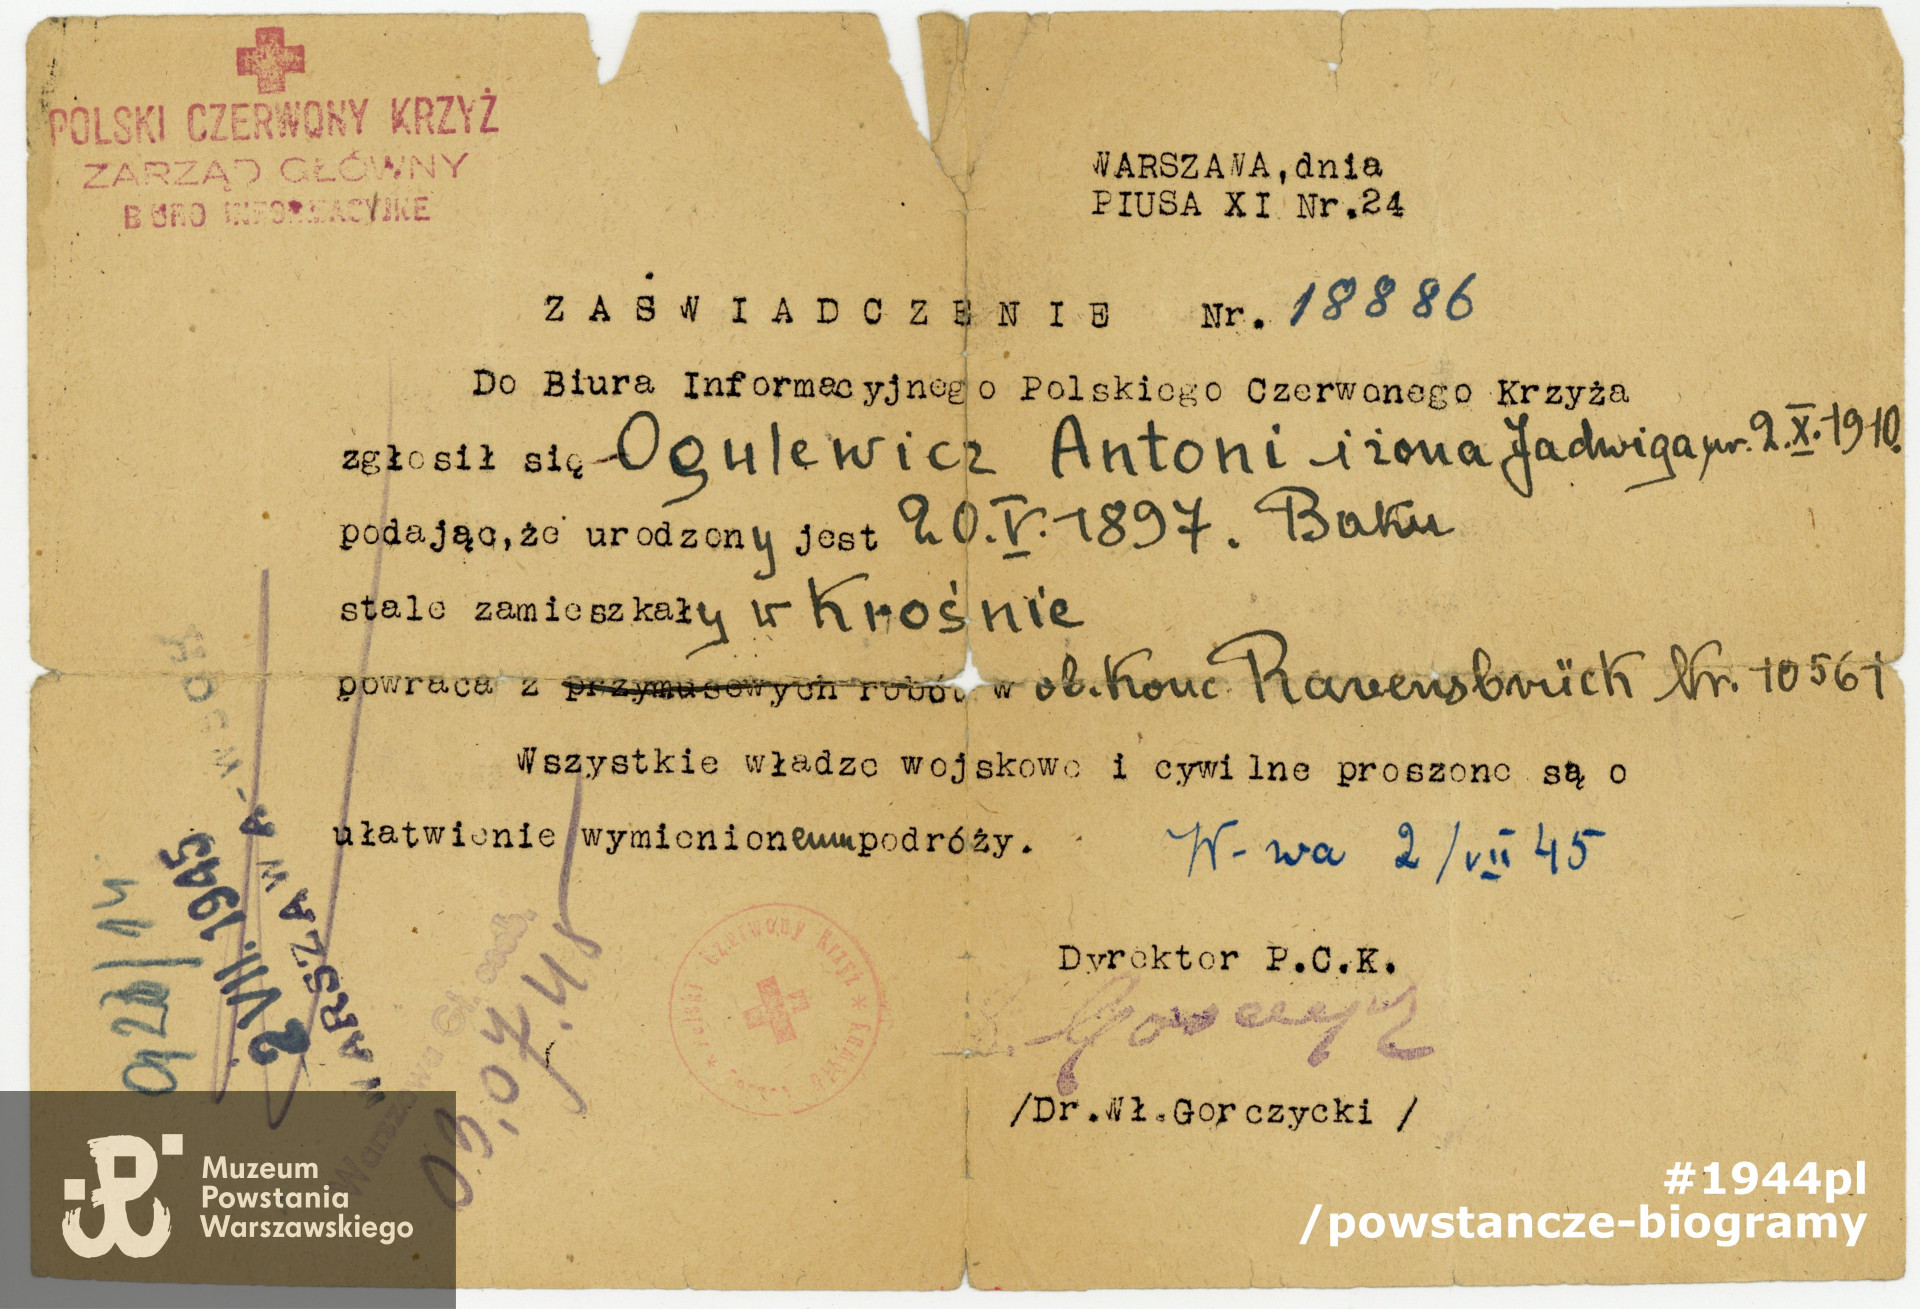 POLSKI CZERWONY KRZYŻ
ZARZĄD GŁÓWNY
BIURO INFORMACYJNE
WARSZAWA, dnia
PIUSA XI Nr.24
ZAŚWIADCZENIE Nr. 18886
Do Biura Informacyjnego Polskiego Czerwonego Krzyża
zgłosił się Ogulewicz Antoni i żona Jadwiga, ur. 2.X.1910.
podając, że urodzony jest 20.V.1897. Baku
stale zamieszkały w Krośnie
powraca z przymusowych robót w ob. Konc Ravensbrück Nr. 10561
Wszystkie władze wojskowe i cywilne proszone są o
ułatwienie wymienionemu podróży.
W-wa 2/VII 45
Dyrektor P.C.K.
/Dr.Wł.Gorczycki /
2 VII. 1945
WARSZAWA
03,07.45
Polski Czerwony Krzyż
Muzeum
Powstania
Warszawskiego
#1944pl
/powstancze-biogramy